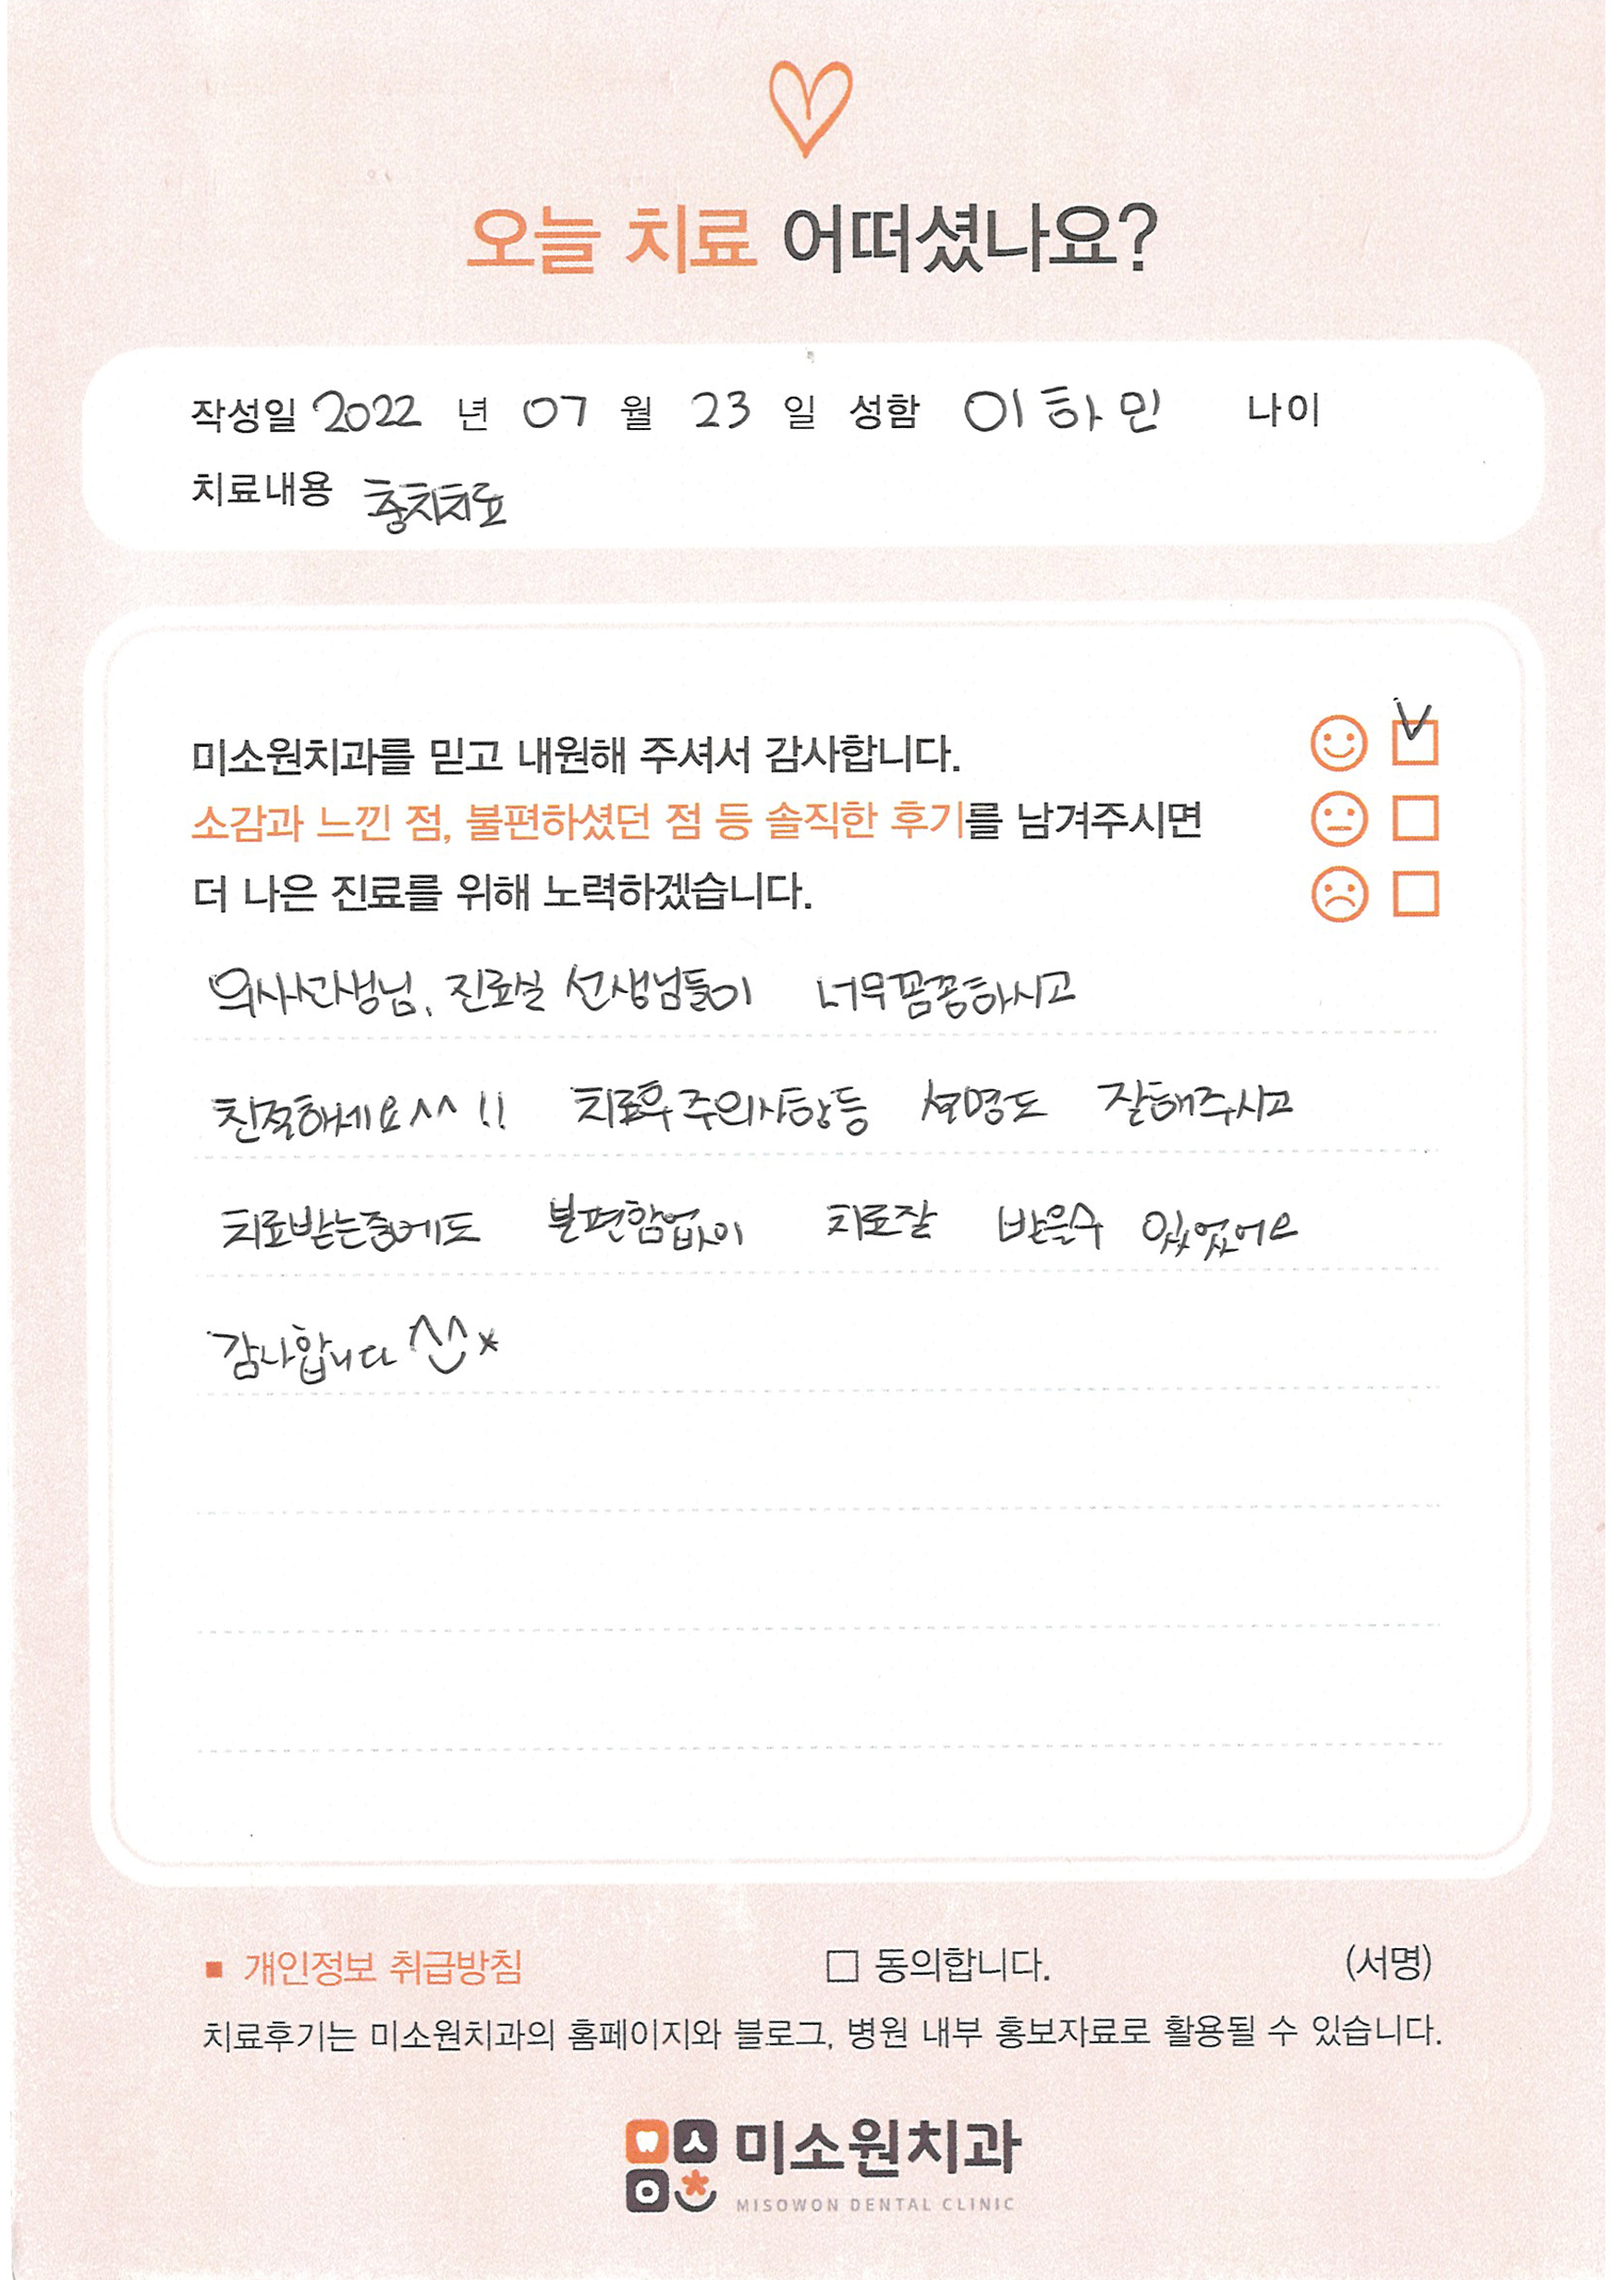 오늘 치료 어떠셨나요?
작성일 2022 년 07 월 23 일 성함 이하민 나이
치료내용 충치치료
미소원치과를 믿고 내원해 주셔서 감사합니다.
소감과 느낀 점, 불편하셨던 점 등 솔직한 후기를 남겨주시면
더 나은 진료를 위해 노력하겠습니다.
의사선생님, 진료실 선생님들이 너무꼼꼼하시고
친절하세요^^ !! 치료후 주의사항등 설명도 잘해주시고
치료받는중에도 불편함없이 치료잘 받을수 있었어요
감사합니다 ^^*
■ 개인정보 취급방침 □ 동의합니다. (서명)
치료후기는 미소원치과의 홈페이지와 블로그, 병원 내부 홍보자료로 활용될 수 있습니다.
미소원치과
MISOWON DENTAL CLINIC